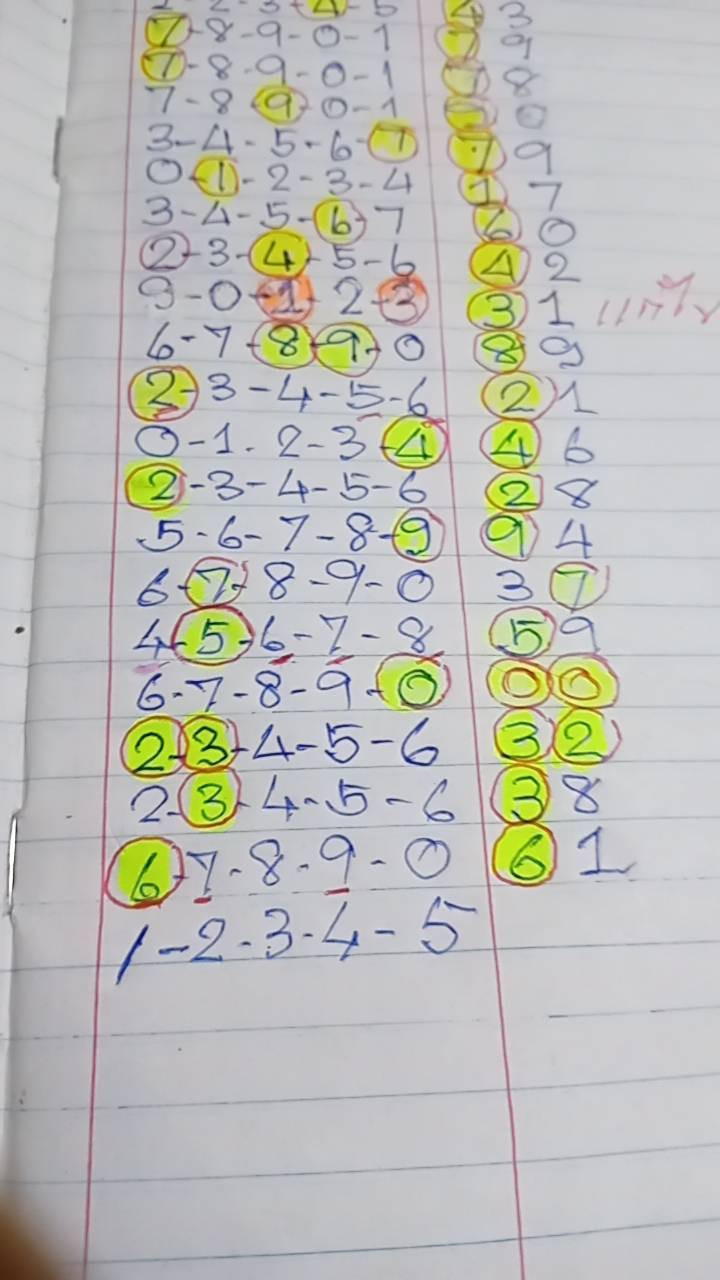 2-3-4-5 4 3
7-8-9-0-1 7 9
7-8-9-0-1 7 8
7-8-9-0-1 0
3-4-5-6-7 7 9
0-1-2-3-4 1 7
3-4-5-6-7 6 0
2-3-4-5-6 4 2
9-0-1-2-3 3 1
6-7-8-9-0 8 9
2-3-4-5-6 2 1
0-1-2-3-4 4 6
2-3-4-5-6 2 8
5-6-7-8-9 9 4
6-7-8-9-0 3 7
4-5-6-7-8 5 9
6-7-8-9-0 0 0
2-3-4-5-6 3 2
2-3-4-5-6 3 8
6-7-8-9-0 6 1
1-2-3-4-5